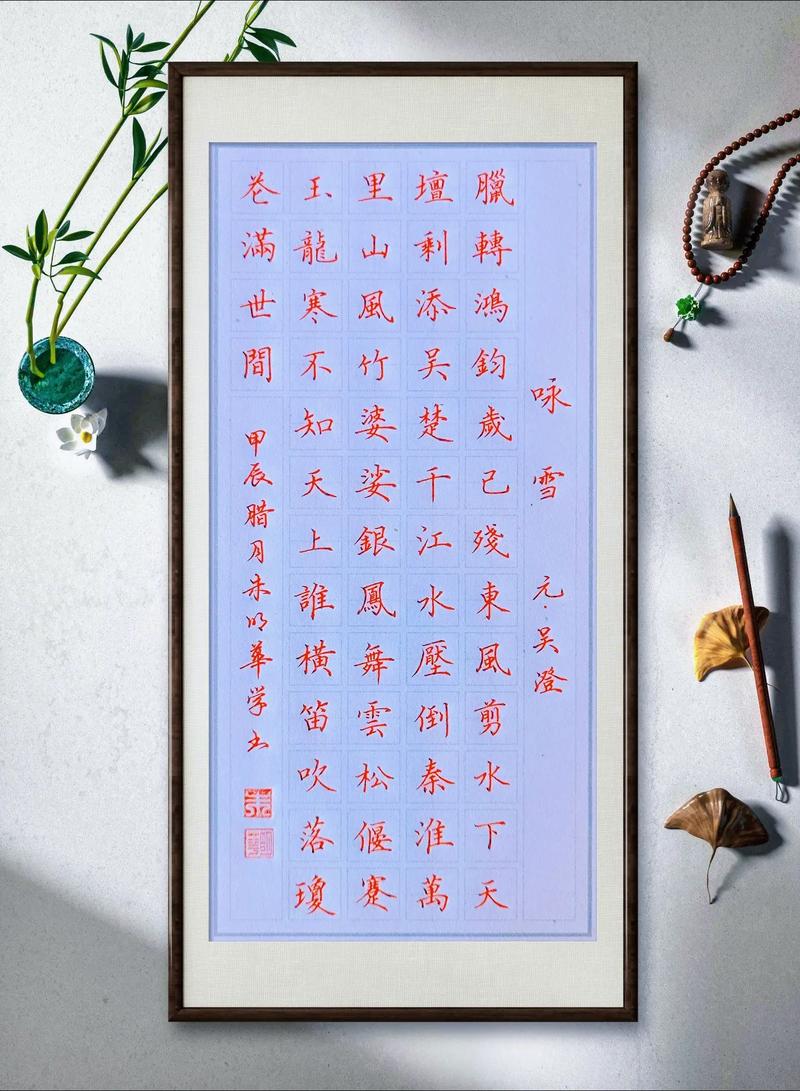 咏雪 元·吴澄
臘轉鴻鈞歲已殘東風剪水下天
壇剩添吴楚千江水壓倒秦淮萬
里山風竹婆娑銀鳳舞雲松偃蹇
玉龍寒不知天上誰橫笛吹落瓊
花滿世間 甲辰腊月朱明華学书